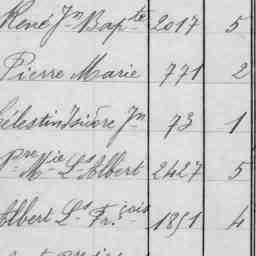 René Jn Bapte 2017 5
Pierre Marie 771 2
Célestin Isidore Jn 73 1
Pre Mie Ls Albert 2427 5
Albert Ls Frçois 1851 4